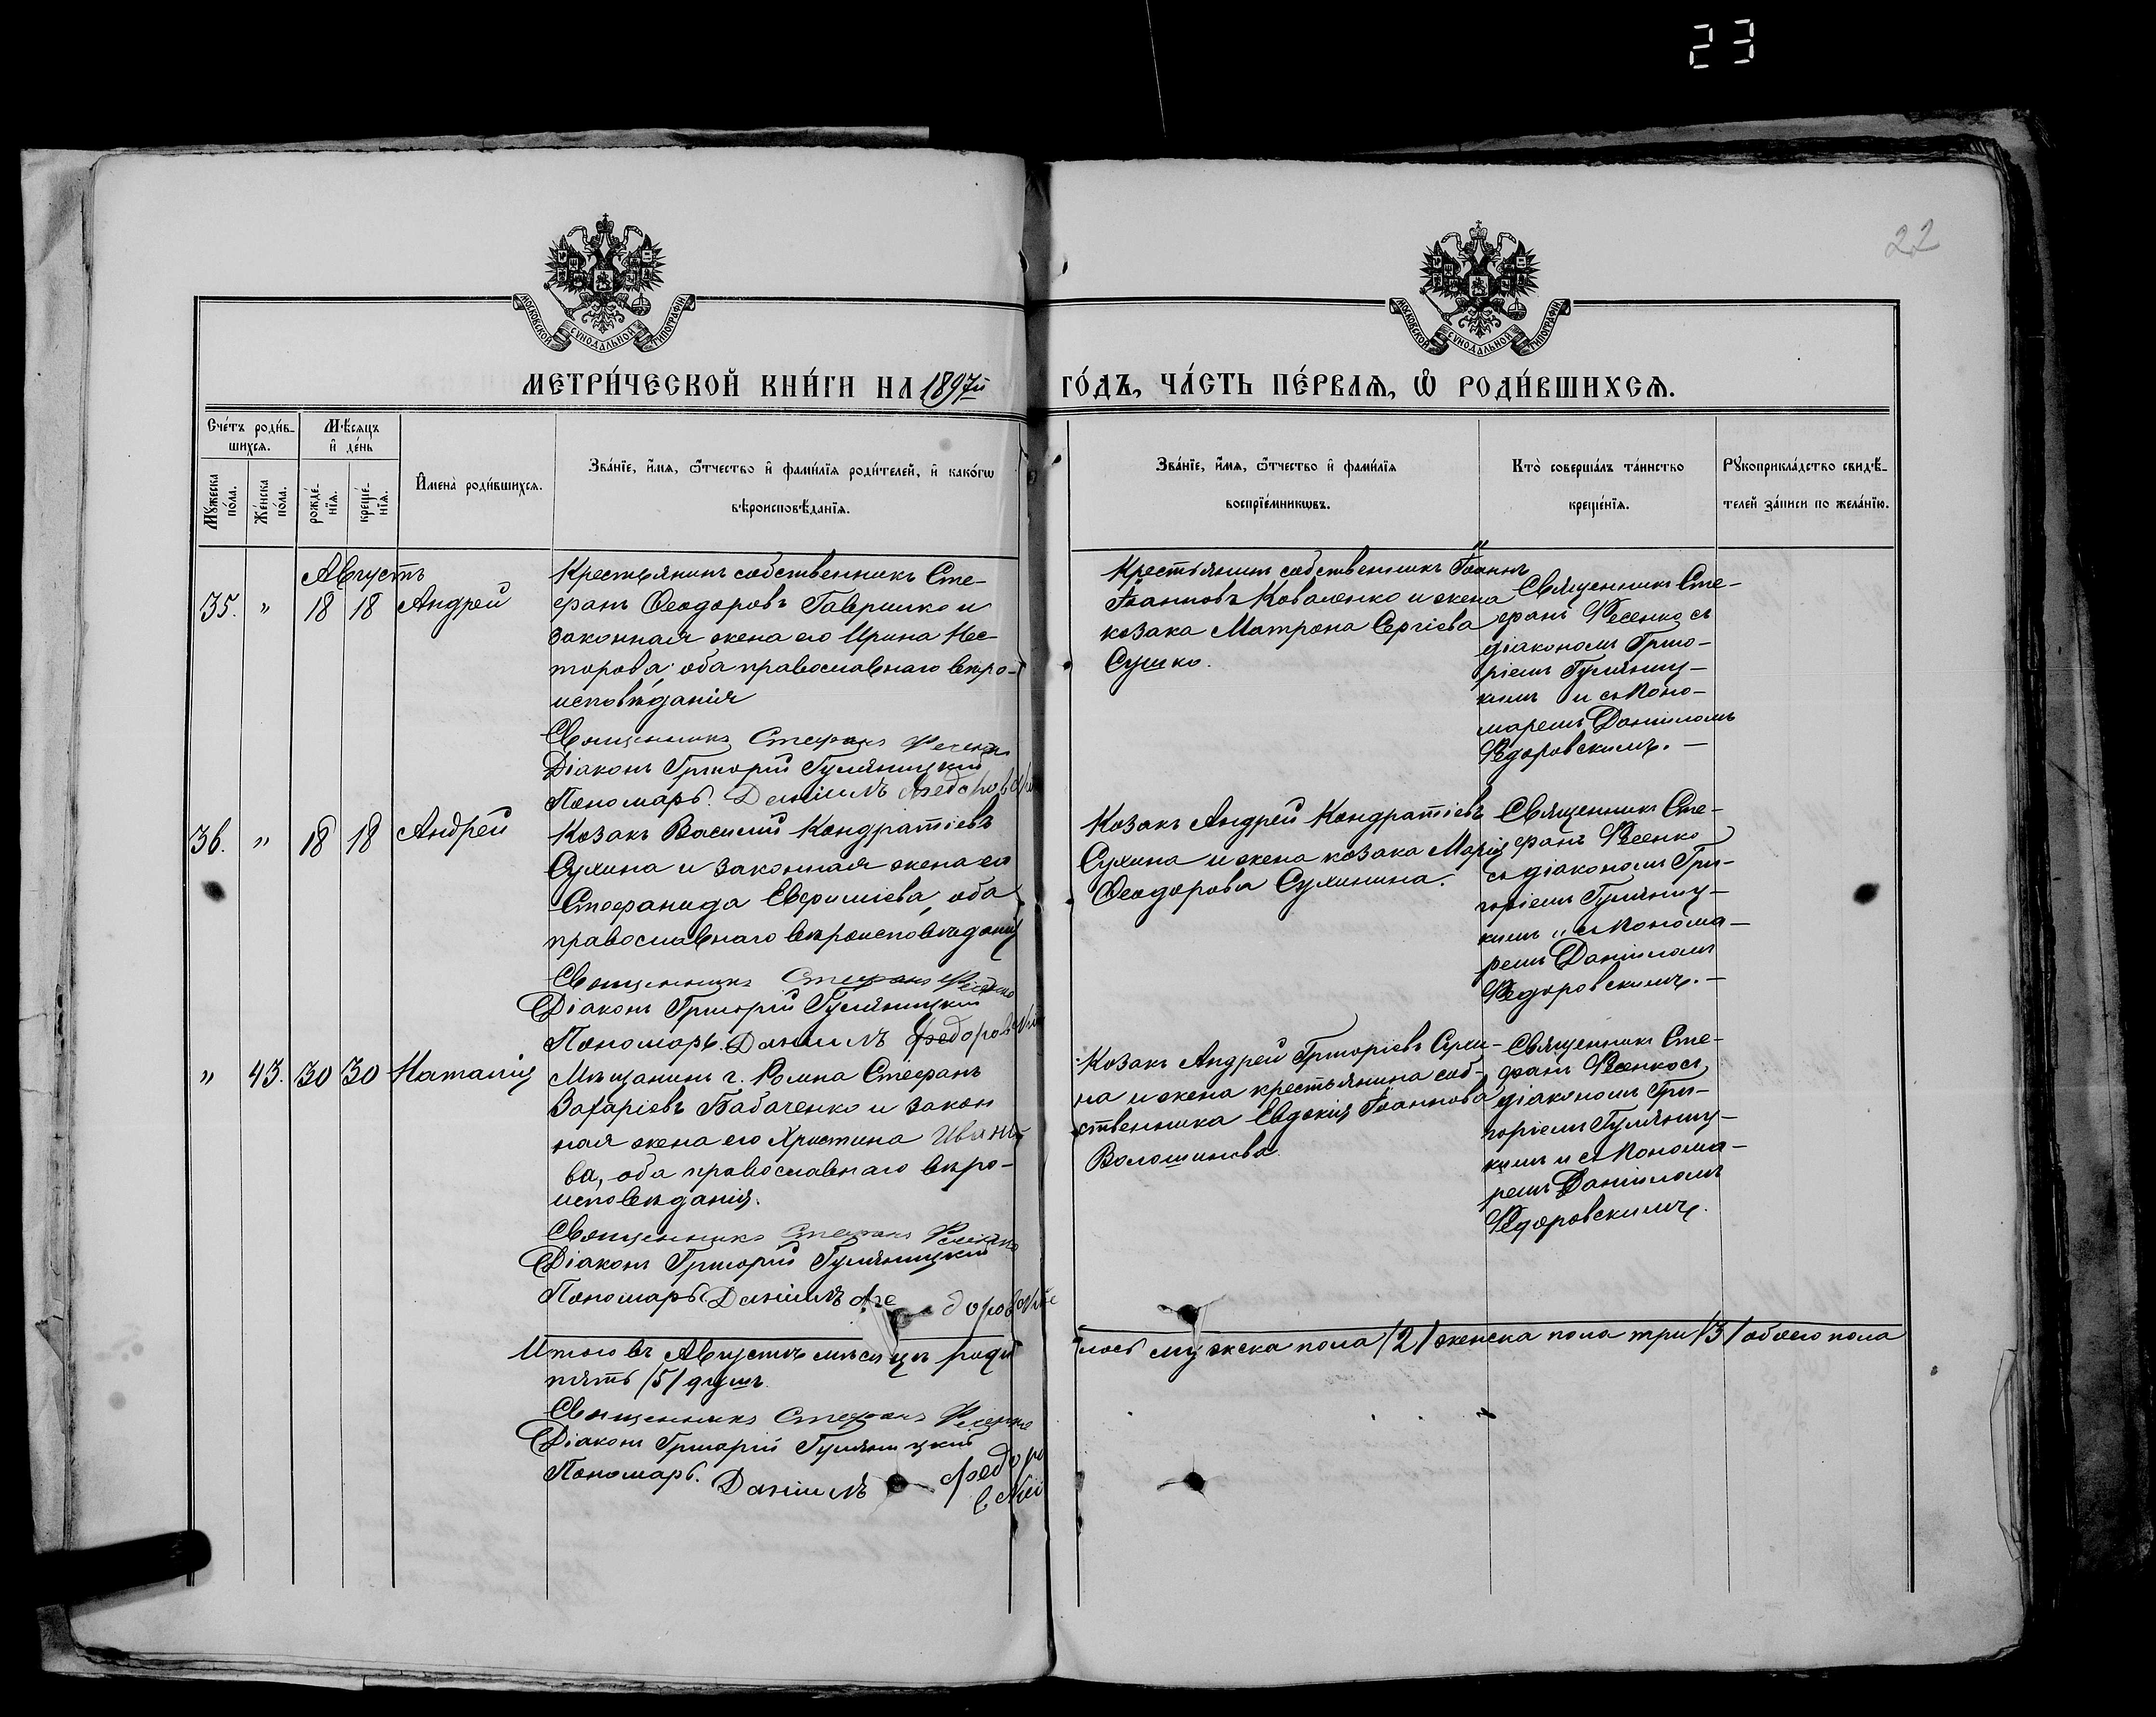 23
22
МОСКОВСКОЙ СѴНОДАЛЬНОЙ ТИПОГРАФІИ
МОСКОВСКОЙ СѴНОДАЛЬНОЙ ТИПОГРАФІИ
МЕТРИ́ЧЕСКОЙ КНИ́ГИ НА 1897й
ГО́ДЪ, ЧА́СТЬ ПЕ́РВАѦ, Ѡ҆ РОДИ́ВШИХСѦ.
Сче́тъ роди́в-
шихсѧ.
Мѣ́сѧцъ
и҆ де́нь
Мꙋ́жеска
по́ла.
Же́нска
по́ла.
рожде́-
нїѧ.
креще́-
нїѧ.
И҆мена̀ роди́вшихсѧ.
Зва́нїе, и҆́мѧ, ѻ҆́тчество и҆ фами́лїѧ роди́телей, и҆ како́гѡ
вѣроисповѣ́данїѧ.
Зва́нїе, и҆́мѧ, ѻ҆́тчество и҆ фами́лїѧ
воспрїе́мникѡвъ.
Кто̀ соверша́лъ та́инство
креще́нїѧ.
Рꙋкоприкла́дство свидѣ́-
телей за́писи по жела́нїю.
Августъ
35. " 18 18 Андрей
Крестьянинъ собственникъ Сте-
фанъ Ѳеодоровъ Гаврилко и
законная жена его Ирина Нес-
торова, оба православнаго вѣро-
исповѣданія
Священникъ Стефанъ Фесенко
Діаконъ Григорій Гуляницкій
Пономарь. Даніилъ Федоровскій
Крестьянинъ собственникъ Іоаннъ
Іоанновъ Коваленко и жена
козака Матрона Сергіева
Сушко.
Священникъ Сте-
фанъ Фесенко съ
діакономъ Григо-
ріемъ Гуляниц-
кимъ и съ Поно-
маремъ Даніиломъ
Федоровскимъ. —
36. " 18 18 Андрей
Козакъ Василій Кондратіевъ
Сухина и законная жена его
Стефанида Евфиміева, оба
православнаго вѣроисповѣданія
Священникъ Стефанъ Фесенко
Діаконъ Григорій Гуляницкій
Пономарь. Даніилъ Федоровскій
Козакъ Андрей Кондратіевъ
Сухина и жена козака Марія
Ѳеодорова Сухинина.
Священникъ Сте-
фанъ Фесенко
съ діакономъ Гри-
горіемъ Гуляниц-
кимъ и съ Понома-
ремъ Даніиломъ
Федоровскимъ. —
" 43. 30 30 Наталія
Мѣщанинъ г. Ромна Стефанъ
Захаріевъ Бабаченко и закон
ная жена его Христина Ивано-
ва, оба православнаго вѣро-
исповѣданія.
Священникъ Стефанъ Фесенко
Діаконъ Григорій Гуляницкій
Пономарь Даніилъ Федоровскій
Козакъ Андрей Григоріевъ Сухи-
на и жена крестьянина соб-
ственника Евдокія Іоаннова
Волошинова.
Священникъ Сте-
фанъ Фесенко съ
діакономъ Гри-
горіемъ Гуляниц-
кимъ и съ Понома-
ремъ Даніиломъ
Федоровскимъ.
Итого въ Августѣ мѣсяцѣ роди
лось мужеска пола /2/ женска пола три /3/ обоего пола
пять /5/ душъ.
Священникъ Стефанъ Фесенко
Діаконъ Григорій Гуляницкій
Пономарь. Даніилъ Федоро
вскій